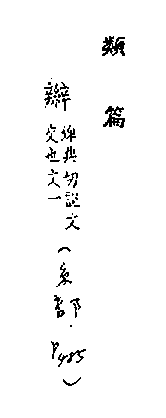 類篇
辮
婢典切說文
交也文一
(糸部.P485)